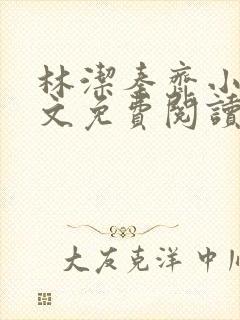 林潔秦齊小
文免費閱讀
大友克洋 中川